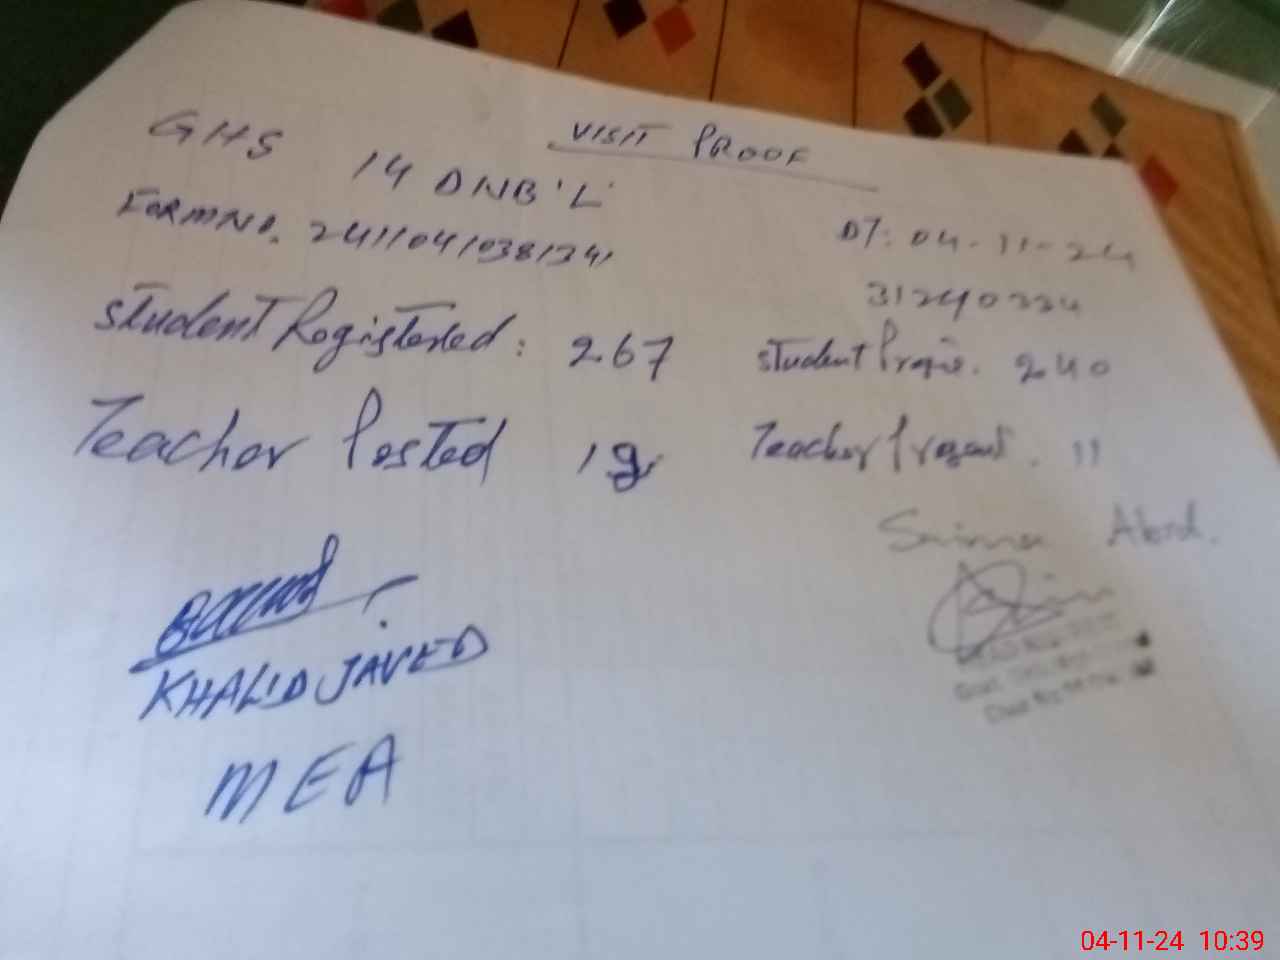 VISIT PROOF
GHS 14 DNB 'L'
FORM NO. 24110410381341 DT: 04-11-24
31240334
Student Registered: 267 Student 240
Teacher Posted Teacher Present. 11
KHALID JAVED
MEA
04-11-24 10:39